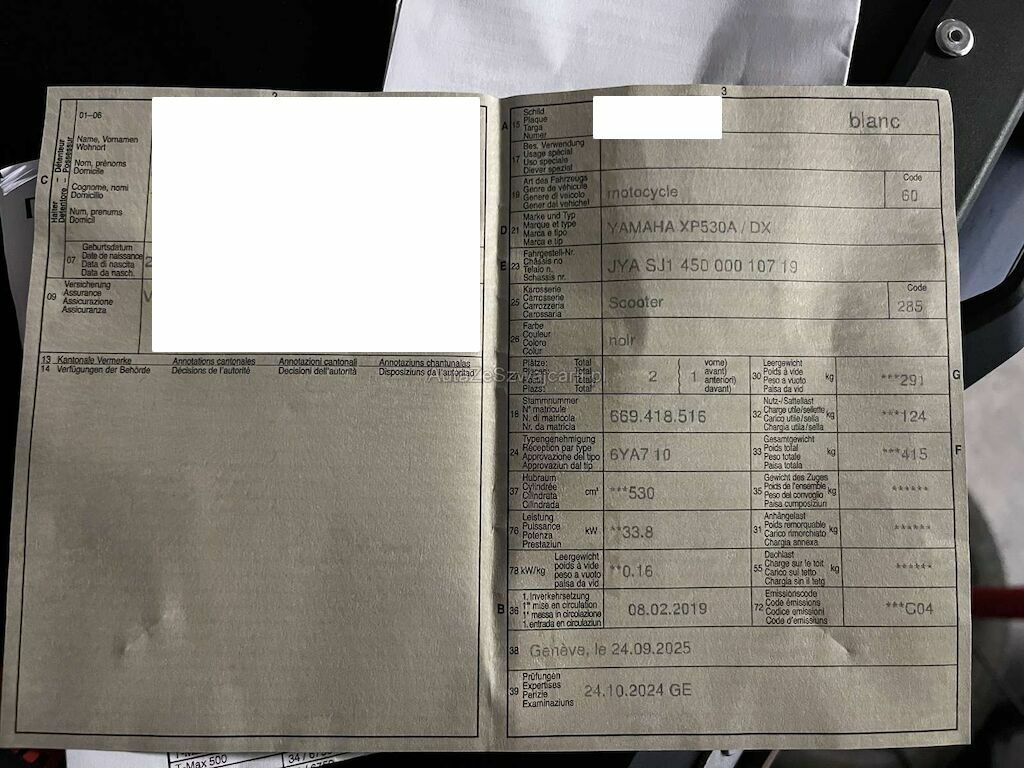 2
01–06
Halter – Détenteur
Detentore – Possessur
C
Name, Vornamen
Wohnort
Nom, prénoms
Domicile
Cognome, nomi
Domicilio
Num, prenums
Domicil
07
Geburtsdatum
Date de naissance
Data di nascita
Data da nasch.
2
09
Versicherung
Assurance
Assicurazione
Assicuranza
V
13 Kantonale Vermerke Annotations cantonales Annotazioni cantonali Annotaziuns chantunalas
14 Verfügungen der Behörde Décisions de l'autorité Decisioni dell'autorità Disposiziuns da l'autoritad
AutaZeSzwajcarii.pl
3
A 15
Schild
Plaque
Targa
Numer
blanc
17
Bes. Verwendung
Usage spécial
Uso speciale
Diever spezial
19
Art des Fahrzeugs
Genre de véhicule
Genere di veicolo
Gener dal vehichel
motocycle
Code
60
D 21
Marke und Typ
Marque et type
Marca e tipo
Marca e tip
YAMAHA XP530A / DX
E 23
Fahrgestell-Nr.
Châssis no
Telaio n.
Schassis nr.
JYA SJ1 450 000 107 19
25
Karosserie
Carrosserie
Carrozzeria
Carossaria
Scooter
Code
285
26
Farbe
Couleur
Colore
Colur
noir
Plätze: Total
Total
Total
Plazs: Total
2 ( 1
vorne)
avant)
anteriori)
davant)
30
Leergewicht
Poids à vide
Peso a vuoto
Paisa da vid
kg
***291
G
18
Stammnummer
N° matricule
N. di matricola
Nr. da matricla
669.418.516
32
Nutz-/Sattellast
Charge utile/sellette
Carico utile/sella
Chargia utila/sella
kg
***124
24
Typengenehmigung
Réception par type
Approvazione del tipo
Approvaziun dal tip
6YA7 10
33
Gesamtgewicht
Poids total
Peso totale
Paisa totala
kg
***415
F
37
Hubraum
Cylindrée
Cilindrata
Cilindrada
cm³
***530
35
Gewicht des Zuges
Poids de l'ensemble
Peso del convoglio
Paisa cumposiziun
kg
******
76
Leistung
Puissance
Potenza
Prestaziun
kW
**33.8
31
Anhängelast
Poids remorquable
Carico rimorchiato
Chargia annexa
kg
******
78 kW/kg
Leergewicht
poids à vide
peso a vuoto
paisa da vid
**0.16
55
Dachlast
Charge sur le toit
Carico sul tetto
Chargia sin il tetg
kg
******
B 36
1. Inverkehrsetzung
1re mise en circulation
1a messa in circolazione
1. entrada en circulaziun
08.02.2019
72
Emissionscode
Code émissions
Codice emissioni
Code d'emissiuns
***G04
38 Genève, le 24.09.2025
39
Prüfungen
Expertises
Perizie
Examinaziuns
24.10.2024 GE
T-Max 500